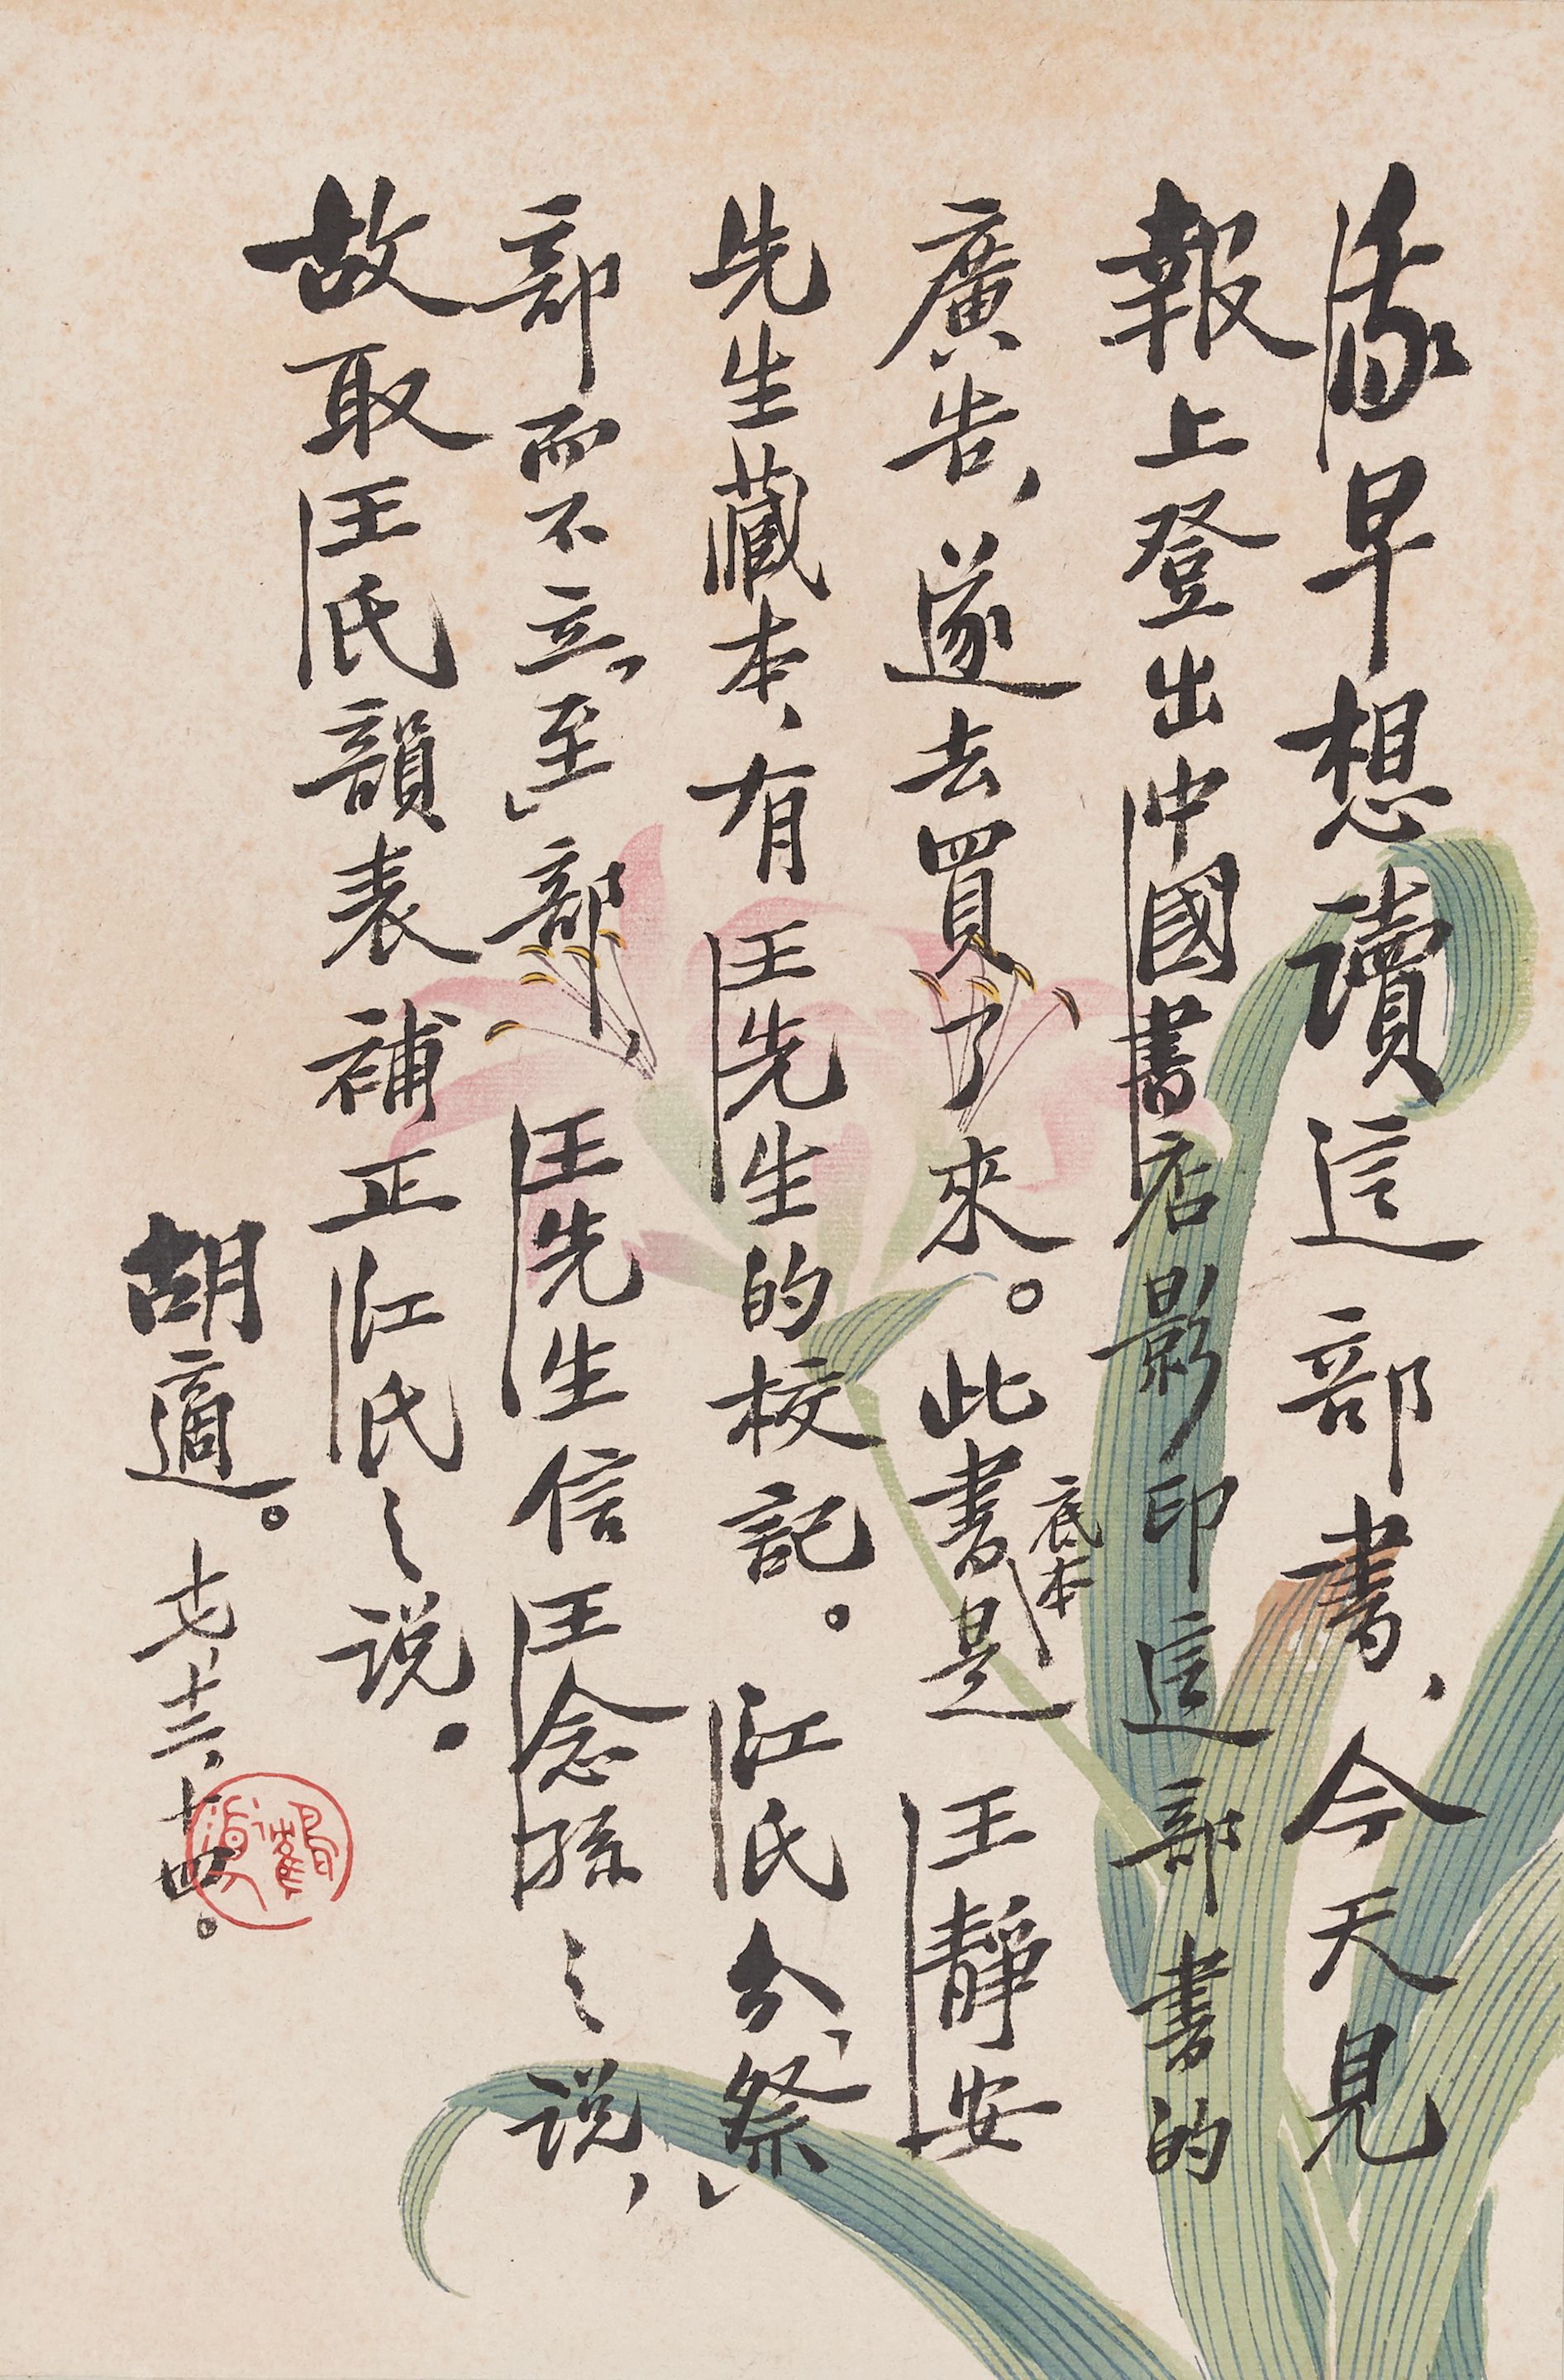 我早想讀這部書、今天見
報上登出中國書店影印這部書的
廣告，遂去買了來。此書底本是王靜安
先生藏本，有王先生的校記。江氏分「祭」
部而不立「至」部，王先生信王念孫之說，
故取王氏韻表補正江氏之說。
胡適。十七、十二、十四。